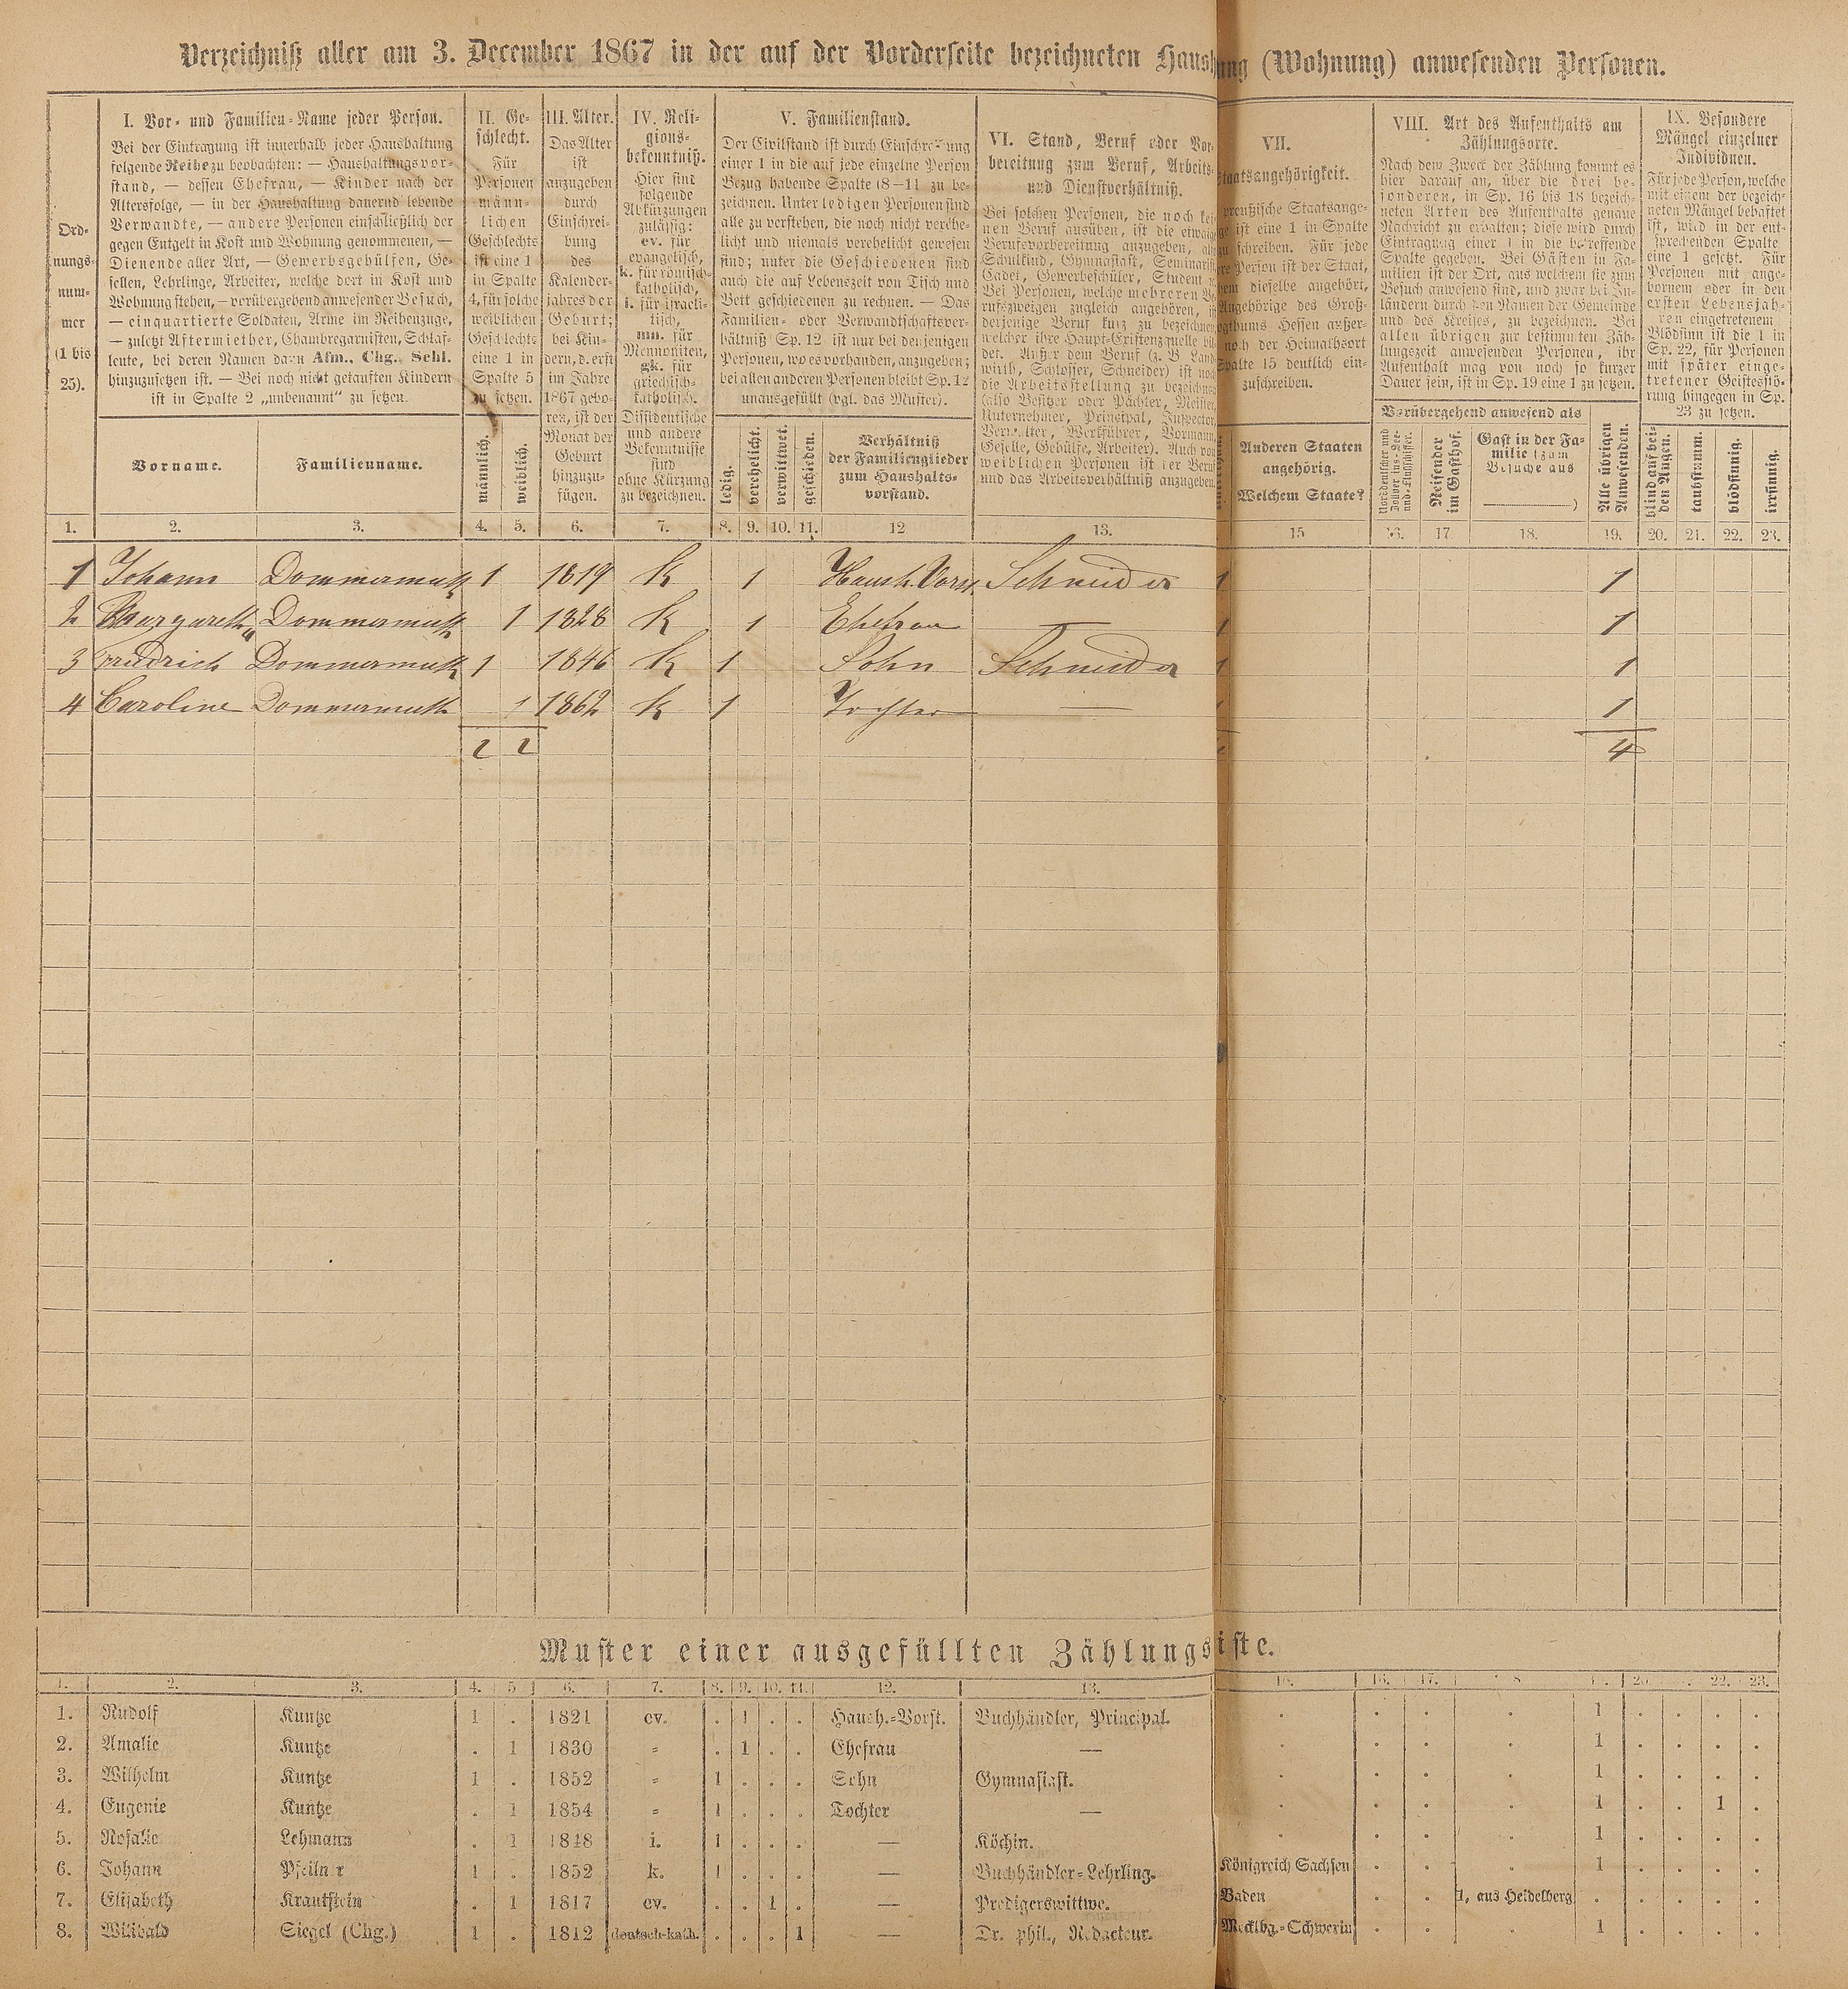 Verzeichniß aller am 3. December 1867 in der auf der Vorderseite bezeichneten Haush ung (Wohnung) anwesenden Personen.
Ord-
nungs-
num-
mer
(1 bis
25).
I. Vor- und Familien-Name jeder Person.
Bei der Eintragung ist innerhalb jeder Haushaltung
folgende Reihe zu beobachten: — Haushaltungsvor-
stand, — dessen Ehefrau, — Kinder nach der
Altersfolge, — in der Haushaltung dauernd lebende
Verwandte, — andere Personen einschließlich der
gegen Entgelt in Kost und Wohnung genommenen, —
Dienende aller Art, — Gewerbsgehülfen, Ge-
sellen, Lehrlinge, Arbeiter, welche dort in Kost und
Wohnung stehen, — vorübergehend anwesender Besuch,
— einquartierte Soldaten, Arme im Reihenzuge,
— zuletzt Aftermiether, Chambregarnisten, Schlaf-
leute, bei deren Namen dann Afm., Chg., Schl.
hinzuzusetzen ist. — Bei noch nicht getauften Kindern
ist in Spalte 2 „unbenannt“ zu setzen.
Vorname.
Familienname.
II. Ge-
schlecht.
Für
Personen
männ-
lichen
Geschlechts
ist eine 1
in Spalte
4, für solche
weiblichen
Geschlechts
eine 1 in
Spalte 5
zu setzen.
männlich.
weiblich.
III. Alter.
Das Alter
ist
anzugeben
durch
Einschrei-
bung
des
Kalender-
jahres der
Geburt;
bei Kin-
dern, d. erst
im Jahre
1867 gebo-
ren, ist der
Monat der
Geburt
hinzuzu-
fügen.
IV. Reli-
gions-
bekenntniß.
Hier sind
folgende
Abkürzungen
zulässig:
ev. für
evangelisch,
k. für römisch-
katholisch,
i. für israeli-
tisch,
mn. für
Mennoniten,
gk. für
griechisch-
katholisch.
Dissidentische
und andere
Bekenntnisse
sind
ohne Kürzung
zu bezeichnen.
V. Familienstand.
Der Civilstand ist durch Einschreibung
einer 1 in die auf jede einzelne Person
Bezug habende Spalte (8—11 zu be-
zeichnen. Unter ledigen Personen sind
alle zu verstehen, die noch nicht verehe-
licht und niemals verehelicht gewesen
sind; unter die Geschiedenen sind
auch die auf Lebenszeit von Tisch und
Bett geschiedenen zu rechnen. — Das
Familien- oder Verwandtschaftsver-
hältniß (Sp. 12 ist nur bei denjenigen
Personen, wo es vorhanden, anzugeben;
bei allen anderen Personen bleibt Sp. 12
unausgefüllt (vgl. das Muster).
ledig.
verehelicht.
verwittwet.
geschieden.
Verhältniß
der Familienglieder
zum Haushalts-
vorstand.
VI. Stand, Beruf oder Vor-
bereitung zum Beruf, Arbeits-
und Dienstverhältniß.
Bei solchen Personen, die noch kei-
nen Beruf ausüben, ist die etwaige
Berufsvorbereitung anzugeben, also
Schulkind, Gymnasiast, Seminarist,
Cadet, Gewerbeschüler, Student
Bei Personen, welche mehreren Be-
rufszweigen zugleich angehören, ist
derjenige Beruf kurz zu bezeichnen,
welcher ihre Haupt-Existenzquelle bil-
det. Außer dem Beruf (z. B. Land-
wirth, Schlosser, Schneider) ist noch
die Arbeitsstellung zu bezeichnen
(also Besitzer oder Pächter, Meister,
Unternehmer, Prinzipal, Inspector,
Verwalter, Werkführer, Vormann,
Geselle, Gehülfe, Arbeiter). Auch von
weiblichen Personen ist der Beruf
und das Arbeitsverhältniß anzugeben.
VII.
Staatsangehörigkeit.
preußische Staatsange-
ge ist eine 1 in Spalte
zu schreiben. Für jede
re Person ist der Staat,
hem dieselbe angehört,
Angehörige des Groß-
ogthums Hessen außer-
noch der Heimathsort
Spalte 15 deutlich ein-
zuschreiben.
Anderen Staaten
angehörig.
Welchem Staate?
VIII. Art des Aufenthalts am
Zählungsorte.
Nach dem Zweck der Zählung kommt es
hier darauf an, über die drei be-
sonderen, in Sp. 16 bis 18 bezeich-
neten Arten des Aufenthalts genaue
Nachricht zu erhalten; diese wird durch
Eintragung einer 1 in die betreffende
Spalte gegeben. Bei Gästen in Fa-
milien ist der Ort, aus welchem sie zum
Besuch anwesend sind, und zwar bei In-
ländern durch den Namen der Gemeinde
und des Kreises, zu bezeichnen. Bei
allen übrigen zur bestimmten Zäh-
lungszeit anwesenden Personen, ihr
Aufenthalt mag von noch so kurzer
Dauer sein, ist in Sp. 19 eine 1 zu setzen.
Vorübergehend anwesend als
Norddeutscher und
Zollver ins-See-
und-Flußschiffer.
Reisender
im Gasthof.
Gast in der Fa-
milie (zum
Besuche aus
)
Alle übrigen
Anwesenden.
IX. Besondere
Mängel einzelner
Individuen.
Für jede Person, welche
mit einem der bezeich-
neten Mängel behaftet
ist, wird in der ent-
sprechenden Spalte
eine 1 gesetzt. Für
Personen mit ange-
bornem oder in den
ersten Lebensjah-
ren eingetretenem
Blödsinn ist die 1 in
Sp. 22, für Personen
mit später einge-
tretener Geistesstö-
rung hingegen in Sp.
23 zu setzen.
blind auf bei-
den Augen.
taubstumm.
blödsinnig.
irrsinnig.
1. 2. 3. 4. 5. 6. 7. 8. 9. 10. 11. 12 13. 15 16. 17 18. 19. 20. 21. 22. 23.
1 Johann Dommermuth 1 1819 k 1 Haush. Vorst. Schneider 1 1
2 Margaretha Dommermuth 1 1828 k 1 Ehefrau — 1 1
3 Friedrich Dommermuth 1 1846 k 1 Sohn Schneider 1 1
4 Caroline Dommermuth 1 1862 k 1 Tochter — 1 1
2 2 4
Muster einer ausgefüllten Zählungsliste.
1. 2. 3. 4. 5 6. 7. 8. 9. 10. 11. 12. 13. 15. 16. 17. 8 20. 22. 23.
1. Rudolf Kuntze 1 . 1821 ev. . 1 . . Haush.-Vorst. Buchhändler, Principal. . . . . 1 . . . .
2. Amalie Kuntze . 1 1830 = . 1 . . Ehefrau — . . . . 1 . . . .
3. Wilhelm Kuntze 1 . 1852 = 1 . . . Sohn Gymnasiast. . . . . 1 . . . .
4. Eugenie Kuntze . 1 1854 = 1 . . . Tochter — . . . . 1 . . 1 .
5. Rosalie Lehmann . 1 1848 i. 1 . . . — Köchin. . . . . 1 . . . .
6. Johann Pfeilner 1 . 1852 k. 1 . . . — Buchhändler-Lehrling. Königreich Sachsen . . . 1 . . . .
7. Elisabeth Krautstein . 1 1817 ev. . . 1 . — Predigerswittwe. Baden . . 1, aus Heidelberg . . . . .
8. Willbald Siegel (Chg.) 1 . 1812 deutsch-kath. . . . 1 — Dr. phil., Redacteur. Mecklbg.-Schwerin . . . 1 . . . .